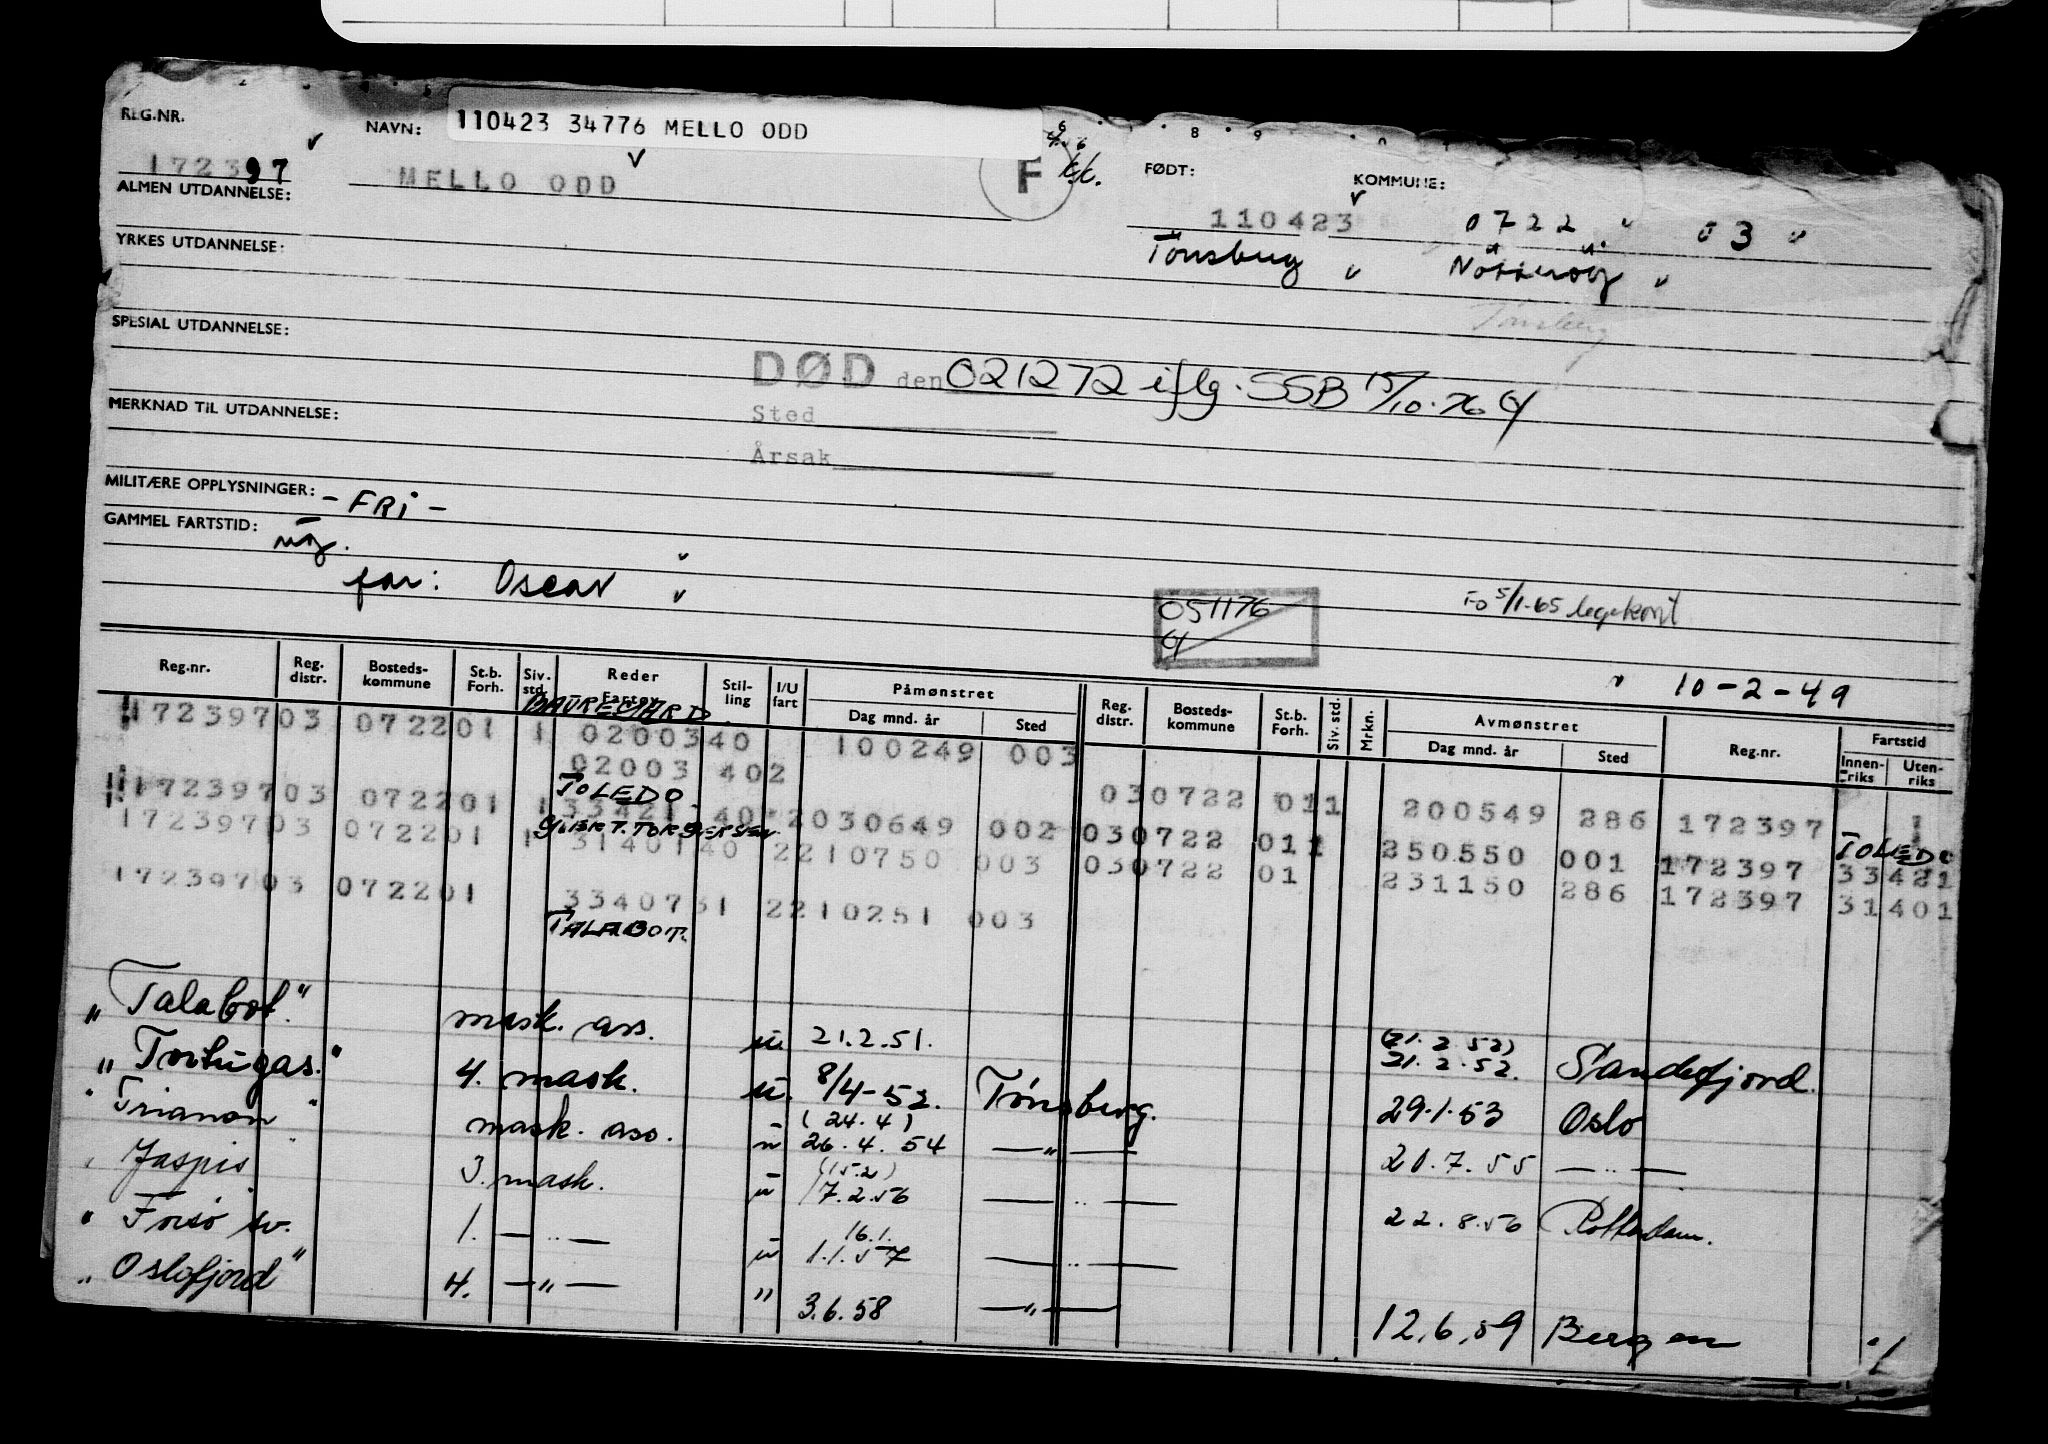 110423 34776 MELLO ODD
REG.NR. NAVN: FØDT: KOMMUNE:
172397 MELLO ODD F kk. 110423 0722 03
ALMEN UTDANNELSE:
YRKES UTDANNELSE: Tønsberg Nøtterøy
Tønsberg
SPESIAL UTDANNELSE:
DØD den 021272 iflg. SSB 15/10-76
MERKNAD TIL UTDANNELSE: Sted
Årsak
MILITÆRE OPPLYSNINGER: - FRI -
GAMMEL FARTSTID:
far: Oscar
051176 FO 5/1-65 legekont
10-2-49
Reg.nr. Reg. distr. Bosteds-kommune St.b. Forh. Siv. std. Reder Fartøy Stil-ling I/U fart Påmønstret Dag mnd. år Sted Reg. distr. Bosteds-kommune St.b. Forh. Siv. std. Mrkn. Avmønstret Dag mnd. år Sted Reg.nr. Fartstid Innen-riks Uten-riks
BAUREGARD
172397 03 0722 01 1 02003 40 100249 003
02003 402 030722 011 200549 286 172397
TOLEDO TOLEDO
172397 03 0722 01 1 33421 40 2 030649 002 030722 011 250550 001 172397 33421
GJERT TORGERSEN
172397 03 0722 01 1 31401 40 2 210750 003 030722 01 231150 286 172397 31401
172397 03 0722 01 33407 31 2 210251 003
TALABOT.
"Talabot." mask. ass. u. 21.2.51. (21.2.52) 21.2.52. Sandefjord.
"Tortugas." 4. mask. u. 8/4-52. Tønsberg. 29.1.53 Oslo
"Trianon" mask. ass. u (24.4) 26.4.54 —"— 20.7.55 —"—
"Jaspis" 3. mask. u (15.2) 17.2.56 —"— 22.8.56 Rotterdam.
"Torsø sv. 1. —"— u 16.1. 1.1.57 —"—
"Oslofjord" 4. —"— " 3.6.58 —"— 12.6.59 Bergen